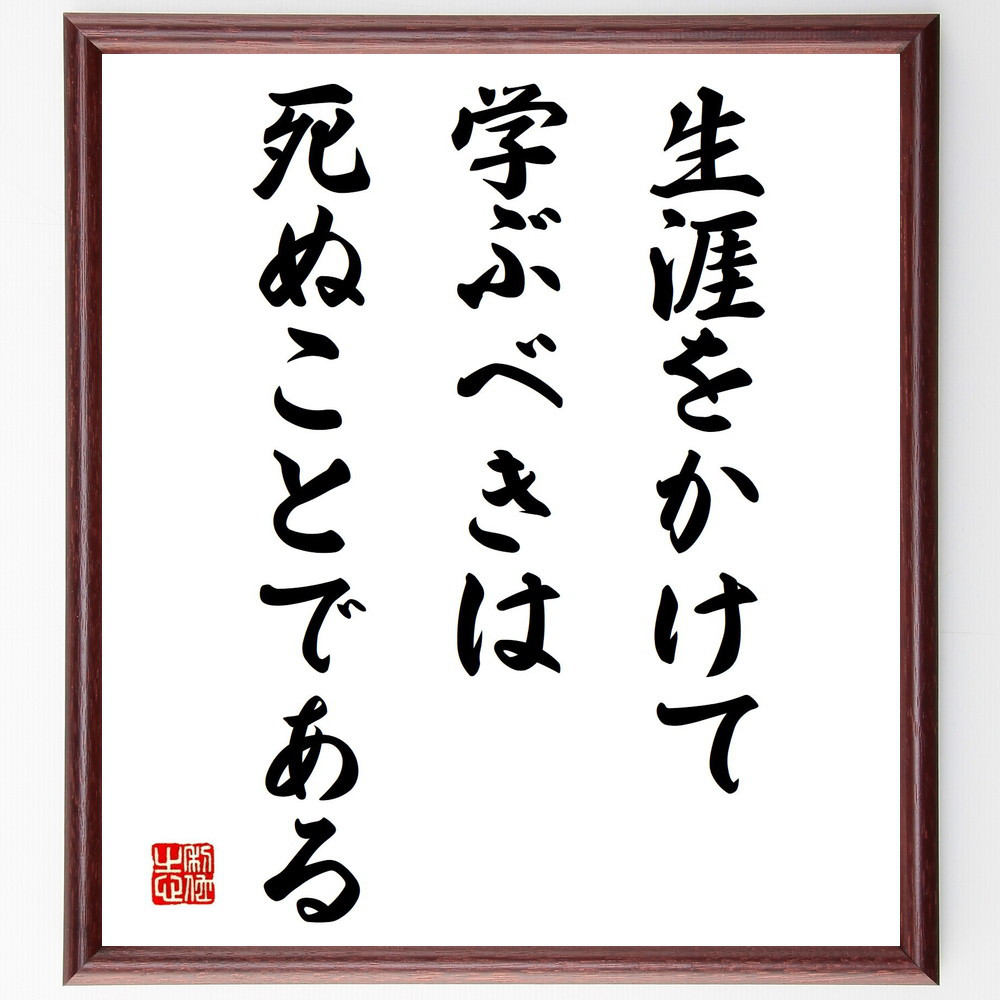 生涯をかけて
学ぶべきは
死ぬことである